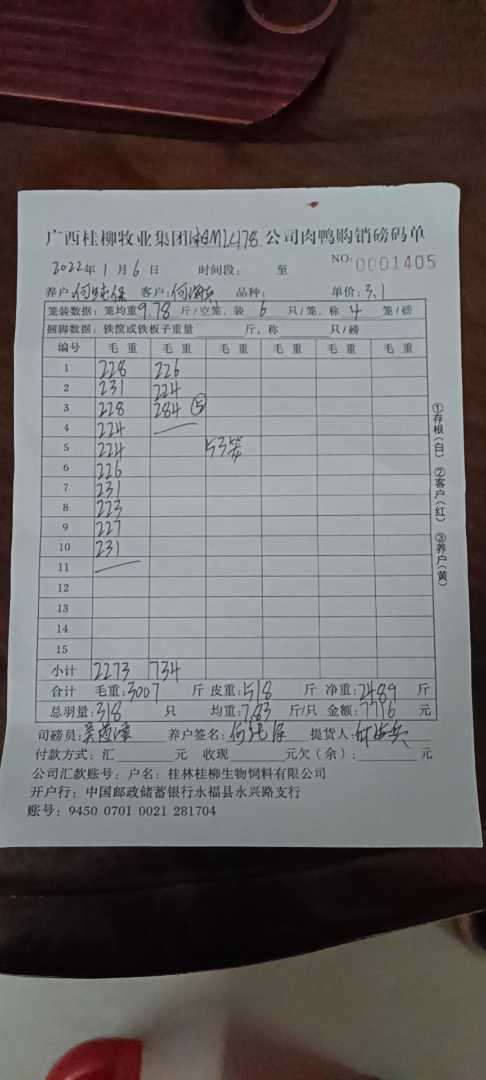 广西桂柳牧业集团 M2478 公司肉鸭购销磅码单
2022年 1月 6日 时间段： 至 NO: 0001405
养户： 客户： 品种： 单价：3.1
笼装数据：笼均重9.78斤/空笼，装 6 只/笼，称 4 笼/磅
捆脚数据：铁筐或铁板子重量 斤，称 只/磅
编号 毛重 毛重 毛重 毛重 毛重 毛重
1 228 226
2 231 224
3 228 284 ⑤
4 224
5 224 53笼
6 226
7 231
8 223
9 227
10 231
11
12
13
14
15
小计 2273 734
合计 毛重：3007 斤 皮重：518 斤 净重：2489 斤
总羽量：318 只 均重：7.83 斤/只 金额：7716 元
司磅员： 养户签名： 提货人：
付款方式：汇 元 收现 元欠（余）： 元
公司汇款账号：户名：桂林桂柳生物饲料有限公司
开户行：中国邮政储蓄银行永福县永兴路支行
账号：9450 0701 0021 281704
①存根(白) ②客户(红) ③养户(黄)